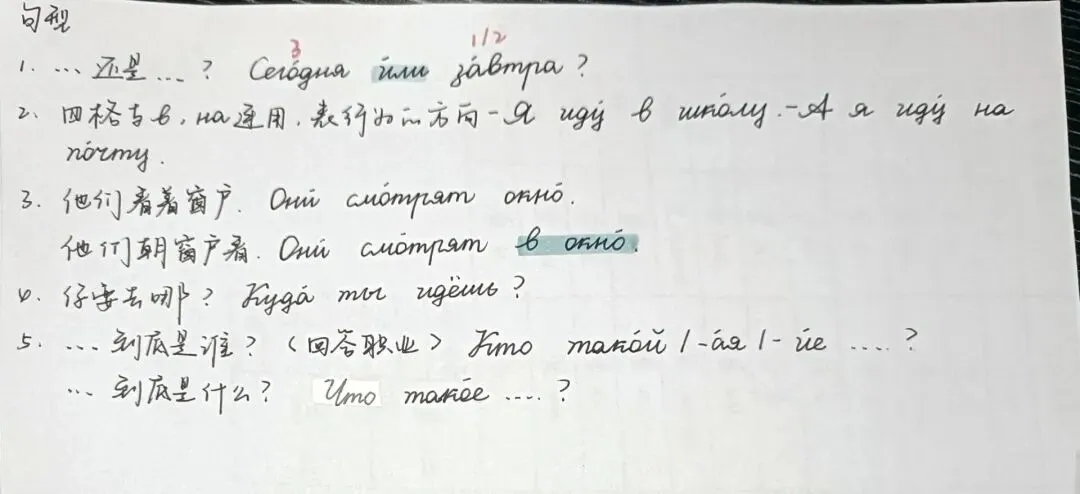 句型
3 1/2
1. ... 还是 ... ? Сего́дня и́ли за́втра ?
2. 四格与в, на连用, 表行为的方向 - Я иду́ в шко́лу. - А я иду́ на
по́чту.
3. 他们看着窗户. Они́ смо́трят окно́.
他们朝窗户看. Они́ смо́трят в окно́.
4. 你要去哪? Куда́ ты идёшь ?
5. ... 到底是谁? (回答职业) Кто тако́й / -а́я / - и́е .... ?
... 到底是什么? Что тако́е .... ?